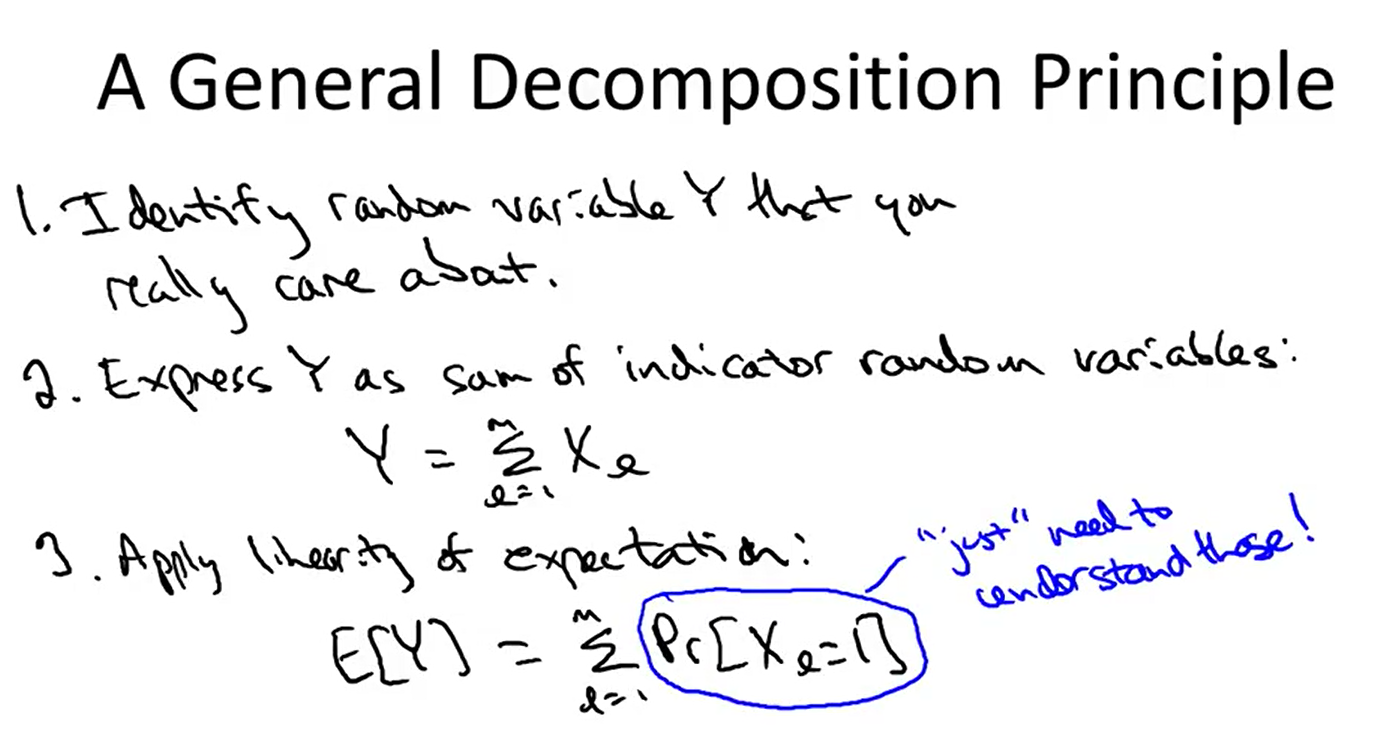 A General Decomposition Principle
1. Identify random variable Y that you
really care about.
2. Express Y as sum of indicator random variables:
Y = \sum_{e=1}^{m} X_e
3. Apply linearity of expectation:
"just" need to
understand those!
E[Y] = \sum_{e=1}^{m} Pr[X_e=1]